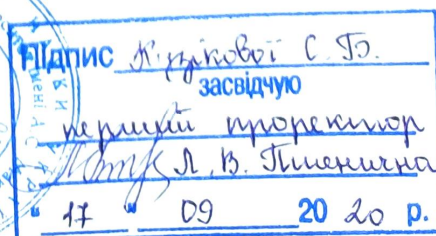 Підпис Кузікової С. Б.
засвідчую
перший проректор
Л. В. Пшенична
"17" 09 2020 р.